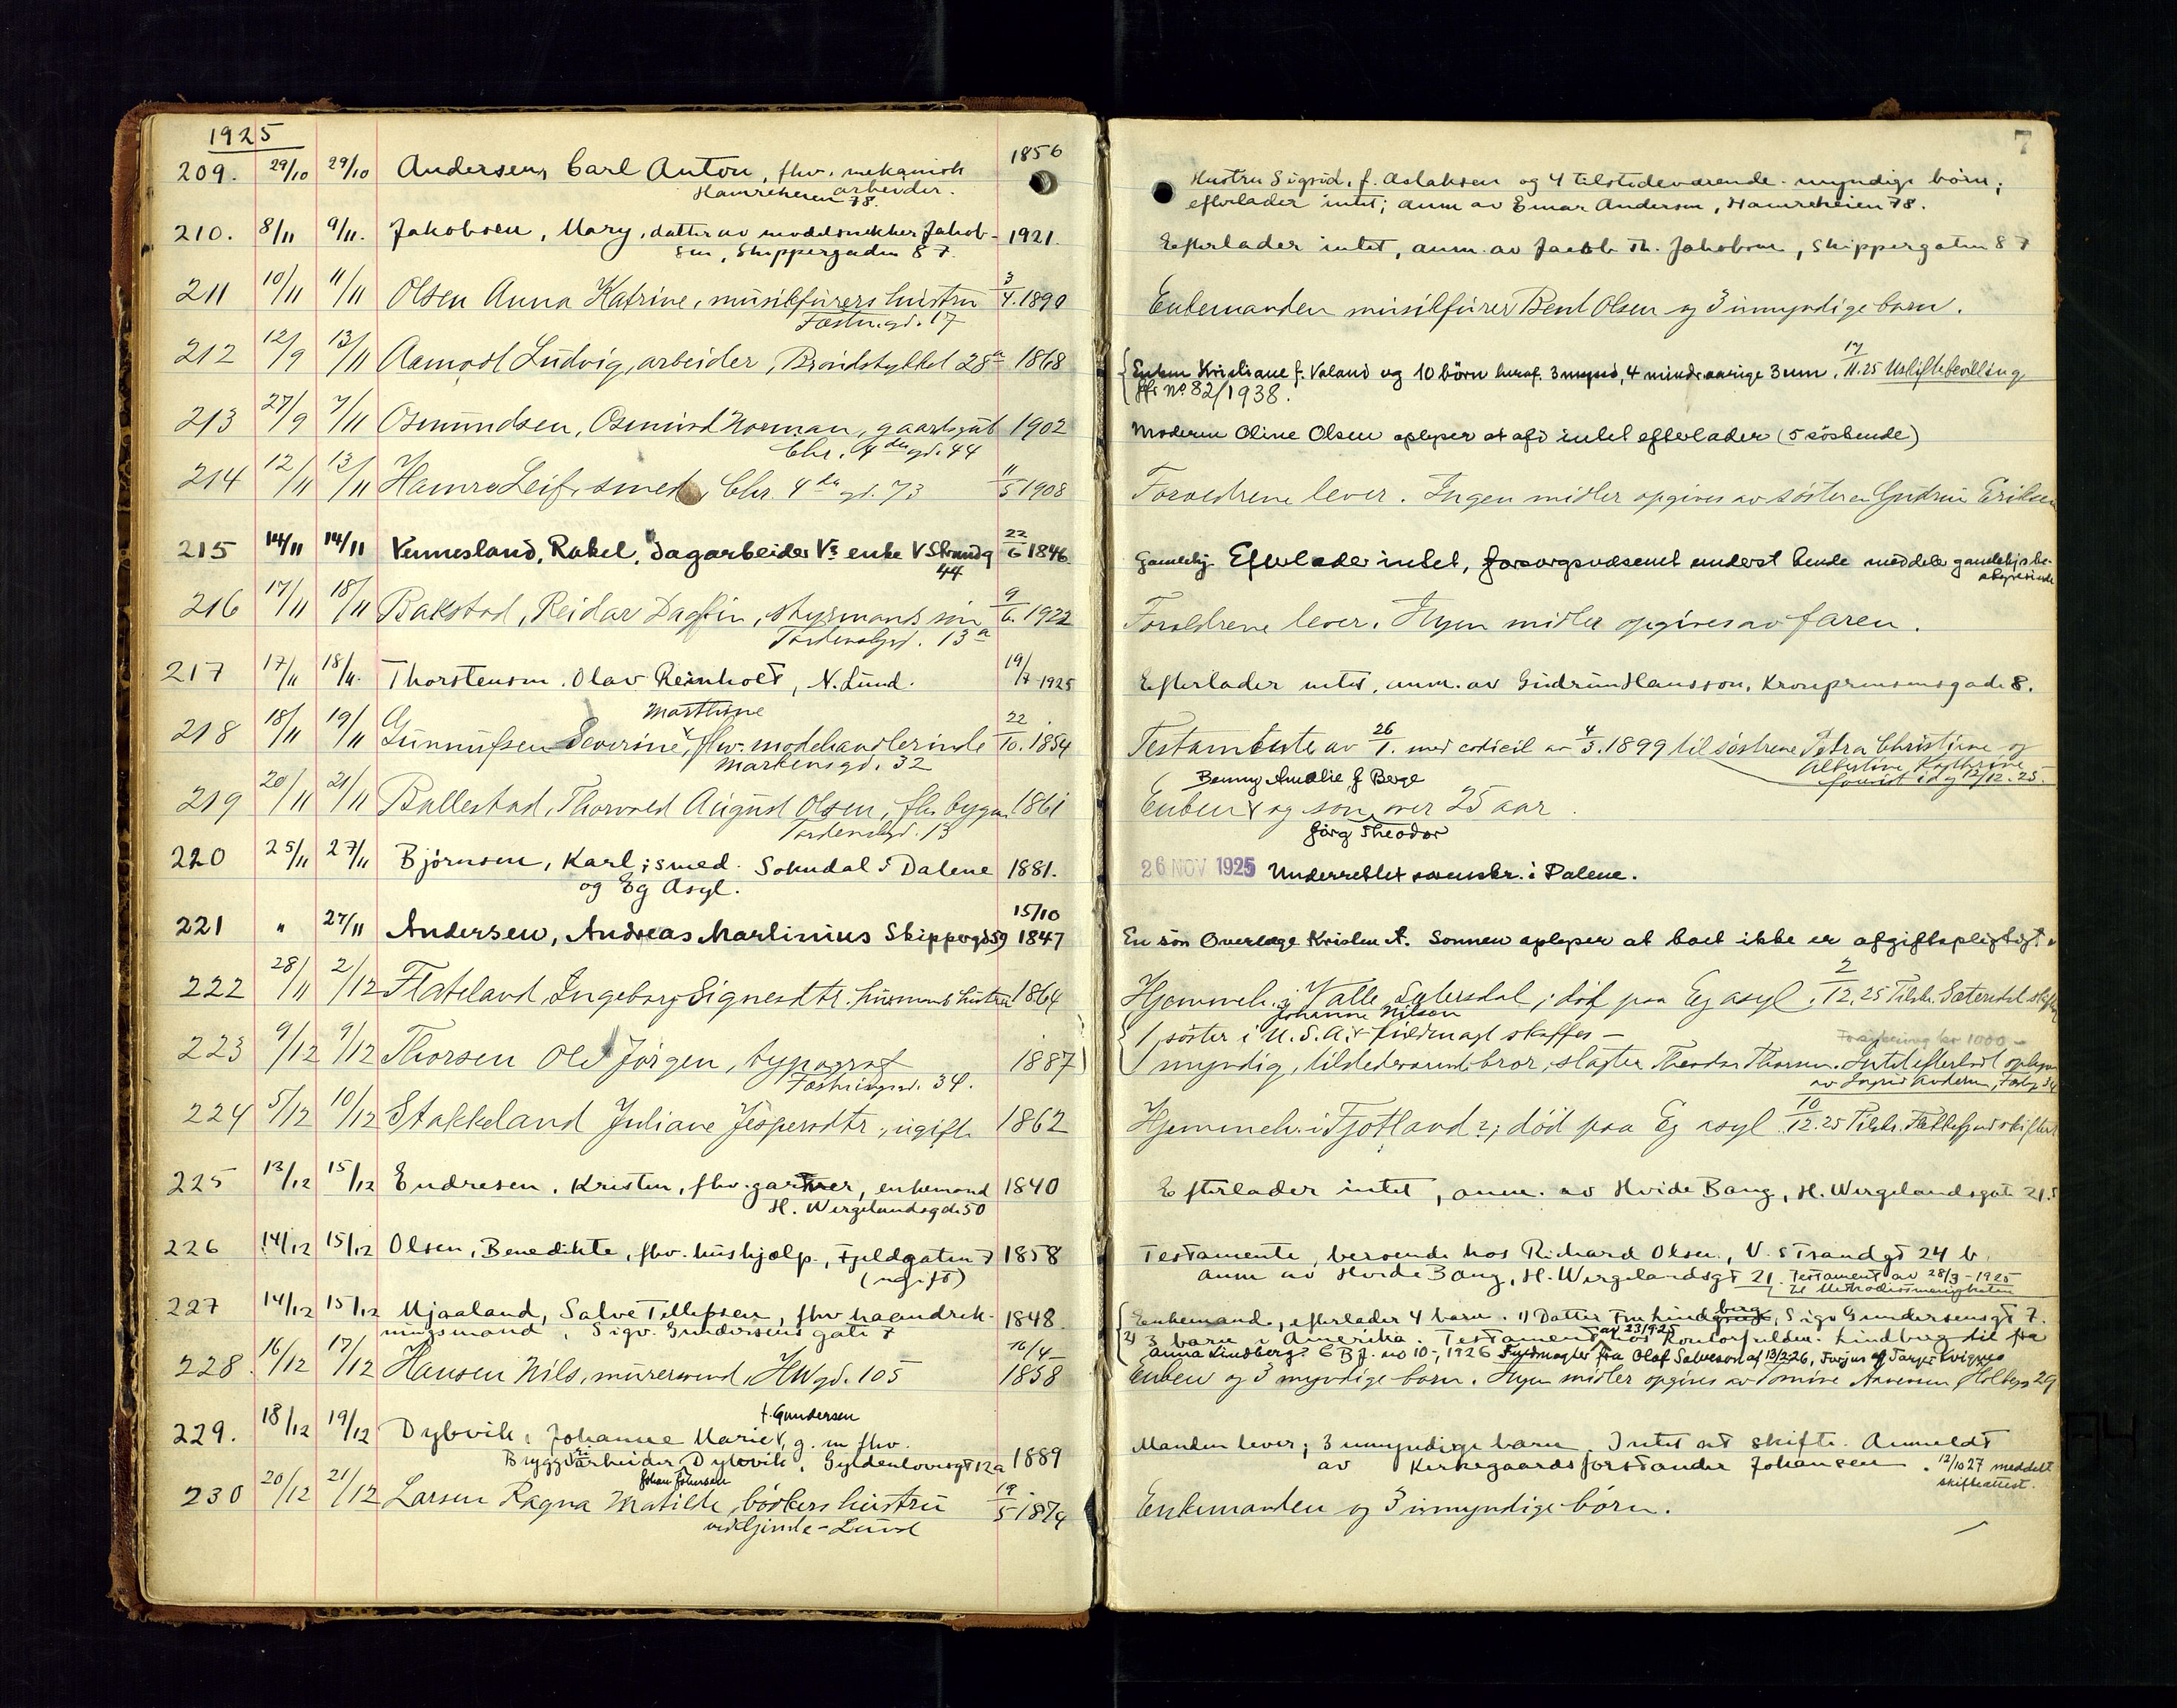 1925
209. 29/10 29/10 Andersen, Carl Anton, fhv. mekanisk 1856
arbeider.
Hamreheien 78.
210. 8/11 9/11. Jakobsen, Mary, datter av modelsnekker Jakob- 1921.
sen, Skippergaden 87.
211 10/11 11/11 Olsen Anna Katrine, musikførers hustru 3/4. 1890
Fæstn.gd. 17
212 12/9 13/11 Aamodt Ludvig, arbeider, Brøndstykket 28a 1868
213 27/9 7/11 Osmundsen, Osmund Norman, gaardsgut 1902
Chr. 4des gd. 44
214 12/11 13/11 Hamre Leif, smed, Chr. 4des gd. 73 11/5 1908
215 14/11 14/11 Vennesland, Rakel, Dagarbeider Vs enke V Strandg 22/6 1846.
44
216 17/11 18/11 Bakstad, Reidar Dagfin, styrmands søn 9/6. 1922
Tordenskgd. 13a
217 17/11 18/11. Thorstensen. Olav Reinholt, N. Lund. 19/7 1925
Marthine
218 18/11 19/11 Gunnufsen Severine, fhv. modehandlerinde 22/10. 1854
Markensgd. 32
219 20/11 21/11 Ballestad, Thorvald August Olsen, fhv. bygm. 1861
Tordenskgd. 13
220 25/11 27/11 Bjørnsen, Karl, smed. Sokndal i Dalene 1881.
og Eg Asyl.
221 " 27/11 Andersen, Andreas Martinius Skippergd 59 15/10 1847
222 28/11 2/12 Flateland, Ingeborg Signesdtr. husmands hustru 1864
223 9/12 9/12 Thorsen Ole Jørgen, typograf 1887
Fæstningsgd. 34.
224 5/12 10/12 Stakkeland Juliane Jespersdtr., ugift 1862
225 13/12 15/12 Endresen, Kristen, fhv. gartner, enkemand 1840
H. Wergelandsgd. 50
226 14/12 15/12 Olsen, Benedikte, fhv. hushjælp., Fjeldgaten 7 1858
(ugift)
227 14/12 15/12 Mjaaland, Salve Tellefsen, fhv. haandrek- 1848.
ningsmand, Sigv. Gundersens gate 7
228. 16/12 17/12 Hansen Nils, murersvend, HWgd. 105 16/4 1858
f. Gundersen
229. 18/12 19/12 Dybvik, Johanne Marie, g. m. fhv.
Bryggeriarbeider Dybvik, Gyldenløvesgt 12a 1889
Johan Johansen
230 20/12 21/12 Larsen Ragna Matilde, bødkers hustru 19/5 1879
Lund
7
Hustru Sigrid, f. Aslaksen og 4 tilstedeværende myndige børn;
efterlader intet; anm. av Einar Andersen, Hamreheien 78.
Efterlader intet, anm. av Jacob Th. Jakobsen, Skippergaten 87
Enkemanden musikfører Bent Olsen og 3 umyndige barn.
Enken Kristiane f. Valand og 10 børn hvoraf 3 mynd, 4 mindreaarige 3 um. 17/11.25 Uskiftebevilling
Jfr. No. 82/1938.
Moderen Oline Olsen oplyser at afd intet efterlader (5 søskende)
Forældrene lever. Ingen midler opgives av søsteren Gudrun Eriksen
Gamlehj. Efterlader intet, forsorgsvæsenet underst. hende meddeler gamlehj. be-
styrerinde
Forældrene lever. Ingen midler opgives av faren.
Efterlader intet, anm. av Gudrun Hansson, Kronprinsensgade 8.
Testamente av 26/1. med codicil av 4/3. 1899 til søstrene Petra Christine og
Albertine Kathrine
12/12.25.
Benny Amalie f Berge
Enken og søn over 25 aar.
Jørg Theodor
26 NOV 1925 Underrettet sorenskr. i Dalene.
En søn Overlæge Kristen A. Sønnen oplyser at boet ikke er afgiftspligtigt
Hjemmeh. i Valle, Setersdal; død paa Eg asyl. 2/12.25 Tilskr. Sætersdal skifter
Johanne Nilsen
1 søster i U.S.A. fuldmagt skaffes –
Forsikring kr 1000 –
1 myndig, tilstedeværende bror, slagter Theodor Thorsen. Intet efterladt oplyses
av Ingrid Andersen, Fæstng 34
Hjemmeh. i Fjotland?; død paa Eg asyl. 10/12.25 Tilskr. Flekkefjord skifteret
Efterlader intet, anm. av Hvide Bang, H. Wergelandsgate 21.
Testamente, beroende hos Richard Olsen, V. Strandgt 24 b
anm av Hvide Bang, H. Wergelandsgt 21. Testament av 28/3-1925
til Methodistmenigheten
Enkemand, efterlader 4 barn. 1) Datter Fru Lindberg, Sigv Gundersensgt 7.
2) 3 barn i Amerika. Testament av 23/9-25 hos Kontorfuldm. Lindberg til fru
Anna Lindberg. EBJ. no 10-, 1926 Fuldmagter fra Olaf Salveson af 13/2 26,
Enken og 3 myndige barn. Ingen midler opgives av Tomine Aanensen, Holbgs 29
Manden lever; 3 umyndige barn. Intet at skifte. Anmeldt
av Kirkegaardsforstander Johansen. 12/10 27 meddelt
skifteattest.
Enkemanden og 3 umyndige børn.